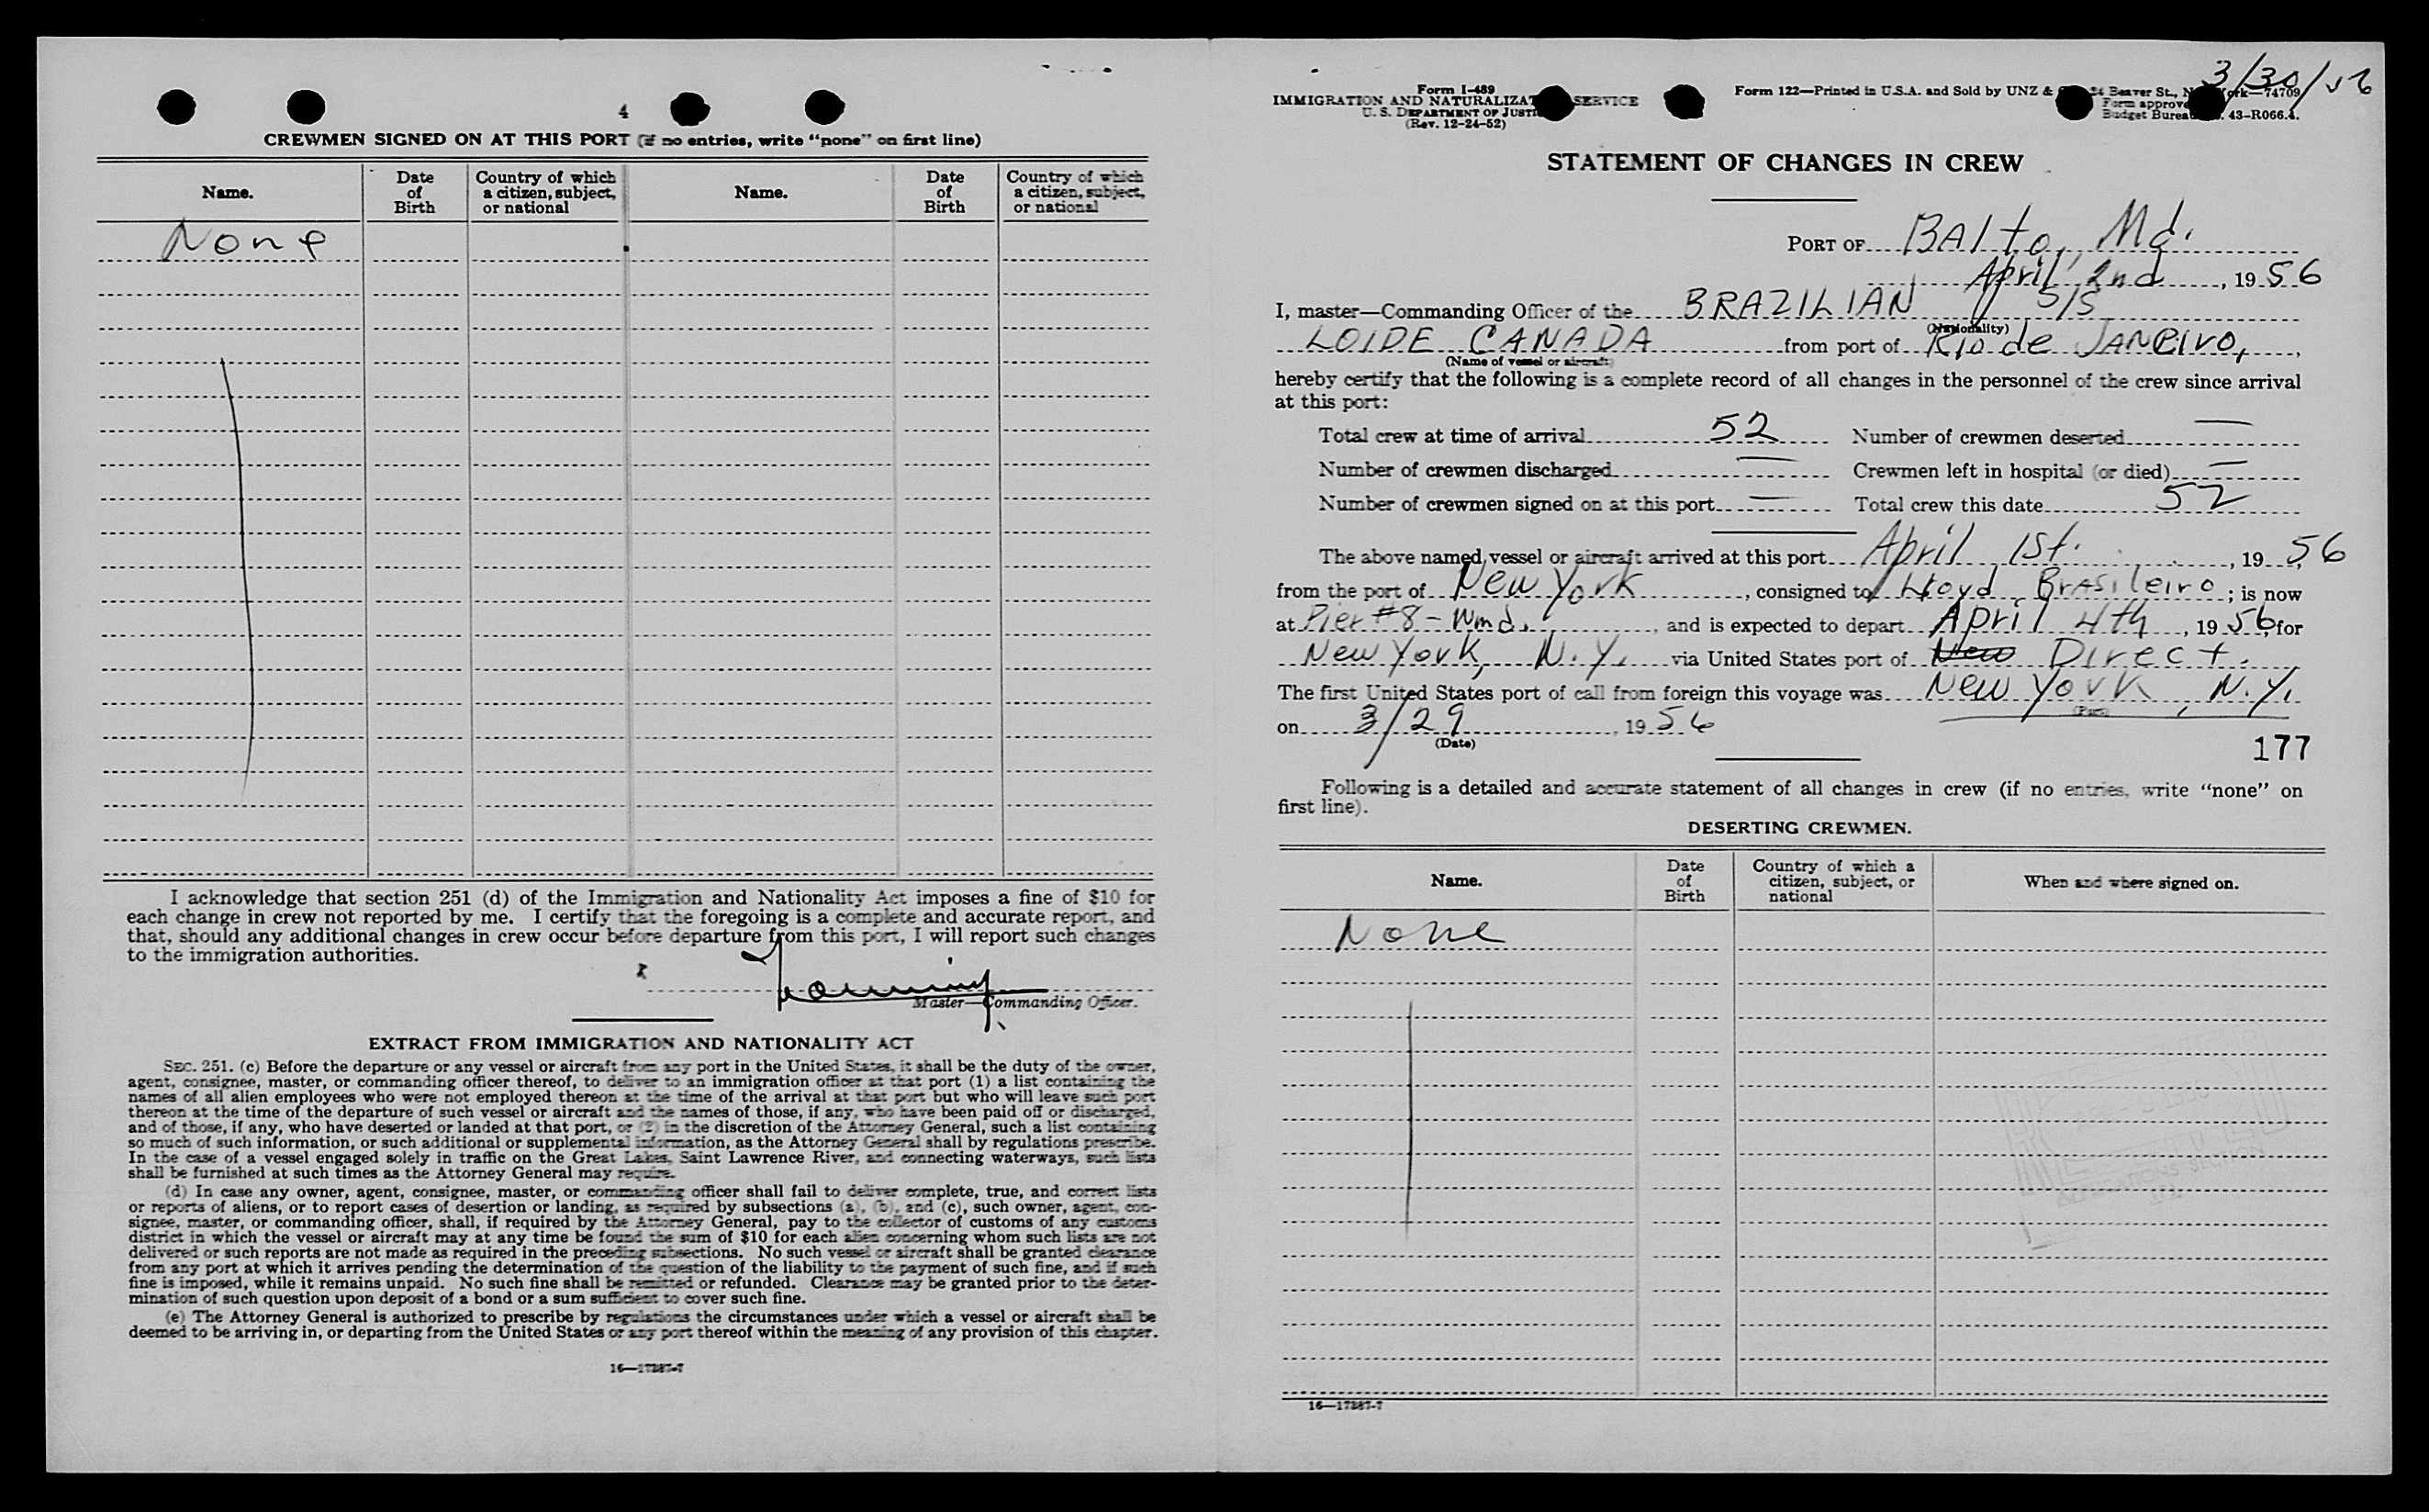 4
CREWMEN SIGNED ON AT THIS PORT (if no entries, write "none" on first line)
Name. Date of Birth Country of which a citizen, subject, or national Name. Date of Birth Country of which a citizen, subject, or national
None
I acknowledge that section 251 (d) of the Immigration and Nationality Act imposes a fine of $10 for
each change in crew not reported by me. I certify that the foregoing is a complete and accurate report, and
that, should any additional changes in crew occur before departure from this port, I will report such changes
to the immigration authorities.
Master—Commanding Officer.
EXTRACT FROM IMMIGRATION AND NATIONALITY ACT
SEC. 251. (c) Before the departure or any vessel or aircraft from any port in the United States, it shall be the duty of the owner,
agent, consignee, master, or commanding officer thereof, to deliver to an immigration officer at that port (1) a list containing the
names of all alien employees who were not employed thereon at the time of the arrival at that port but who will leave such port
thereon at the time of the departure of such vessel or aircraft and the names of those, if any, who have been paid off or discharged,
and of those, if any, who have deserted or landed at that port, or (2) in the discretion of the Attorney General, such a list containing
so much of such information, or such additional or supplemental information, as the Attorney General shall by regulations prescribe.
In the case of a vessel engaged solely in traffic on the Great Lakes, Saint Lawrence River, and connecting waterways, such lists
shall be furnished at such times as the Attorney General may require.
(d) In case any owner, agent, consignee, master, or commanding officer shall fail to deliver complete, true, and correct lists
or reports of aliens, or to report cases of desertion or landing, as required by subsections (a), (b), and (c), such owner, agent, con-
signee, master, or commanding officer, shall, if required by the Attorney General, pay to the collector of customs of any customs
district in which the vessel or aircraft may at any time be found the sum of $10 for each alien concerning whom such lists are not
delivered or such reports are not made as required in the preceding subsections. No such vessel or aircraft shall be granted clearance
from any port at which it arrives pending the determination of the question of the liability to the payment of such fine, and if such
fine is imposed, while it remains unpaid. No such fine shall be remitted or refunded. Clearance may be granted prior to the deter-
mination of such question upon deposit of a bond or a sum sufficient to cover such fine.
(e) The Attorney General is authorized to prescribe by regulations the circumstances under which a vessel or aircraft shall be
deemed to be arriving in, or departing from the United States or any port thereof within the meaning of any provision of this chapter.
16—17387-7
3/30/56
Form I-489
IMMIGRATION AND NATURALIZAT SERVICE
U. S. DEPARTMENT OF JUSTI
(Rev. 12-24-52)
Form 122—Printed in U.S.A. and Sold by UNZ & 24 Beaver St., N ork—74709
Form approve
Budget Burea . 43-R066.4.
STATEMENT OF CHANGES IN CREW
PORT OF BAlto, Md.
April 2nd, 1956
I, master—Commanding Officer of the BRAZILIAN S/S
(Nationality)
LOIDE CANADA from port of Rio de JANeiro,
(Name of vessel or aircraft)
hereby certify that the following is a complete record of all changes in the personnel of the crew since arrival
at this port:
Total crew at time of arrival 52 Number of crewmen deserted —
Number of crewmen discharged — Crewmen left in hospital (or died) —
Number of crewmen signed on at this port — Total crew this date 52
The above named vessel or aircraft arrived at this port April 1st., 1956
from the port of New York, consigned to Lloyd Brasileiro; is now
at Pier #8 - Wmd., and is expected to depart April 4th, 1956, for
New York, N.Y. via United States port of New Direct.
The first United States port of call from foreign this voyage was New York, N.Y.
(Port)
on 3/29, 1956
(Date)
177
Following is a detailed and accurate statement of all changes in crew (if no entries, write "none" on
first line).
DESERTING CREWMEN.
Name. Date of Birth Country of which a citizen, subject, or national When and where signed on.
None
16—17387-7